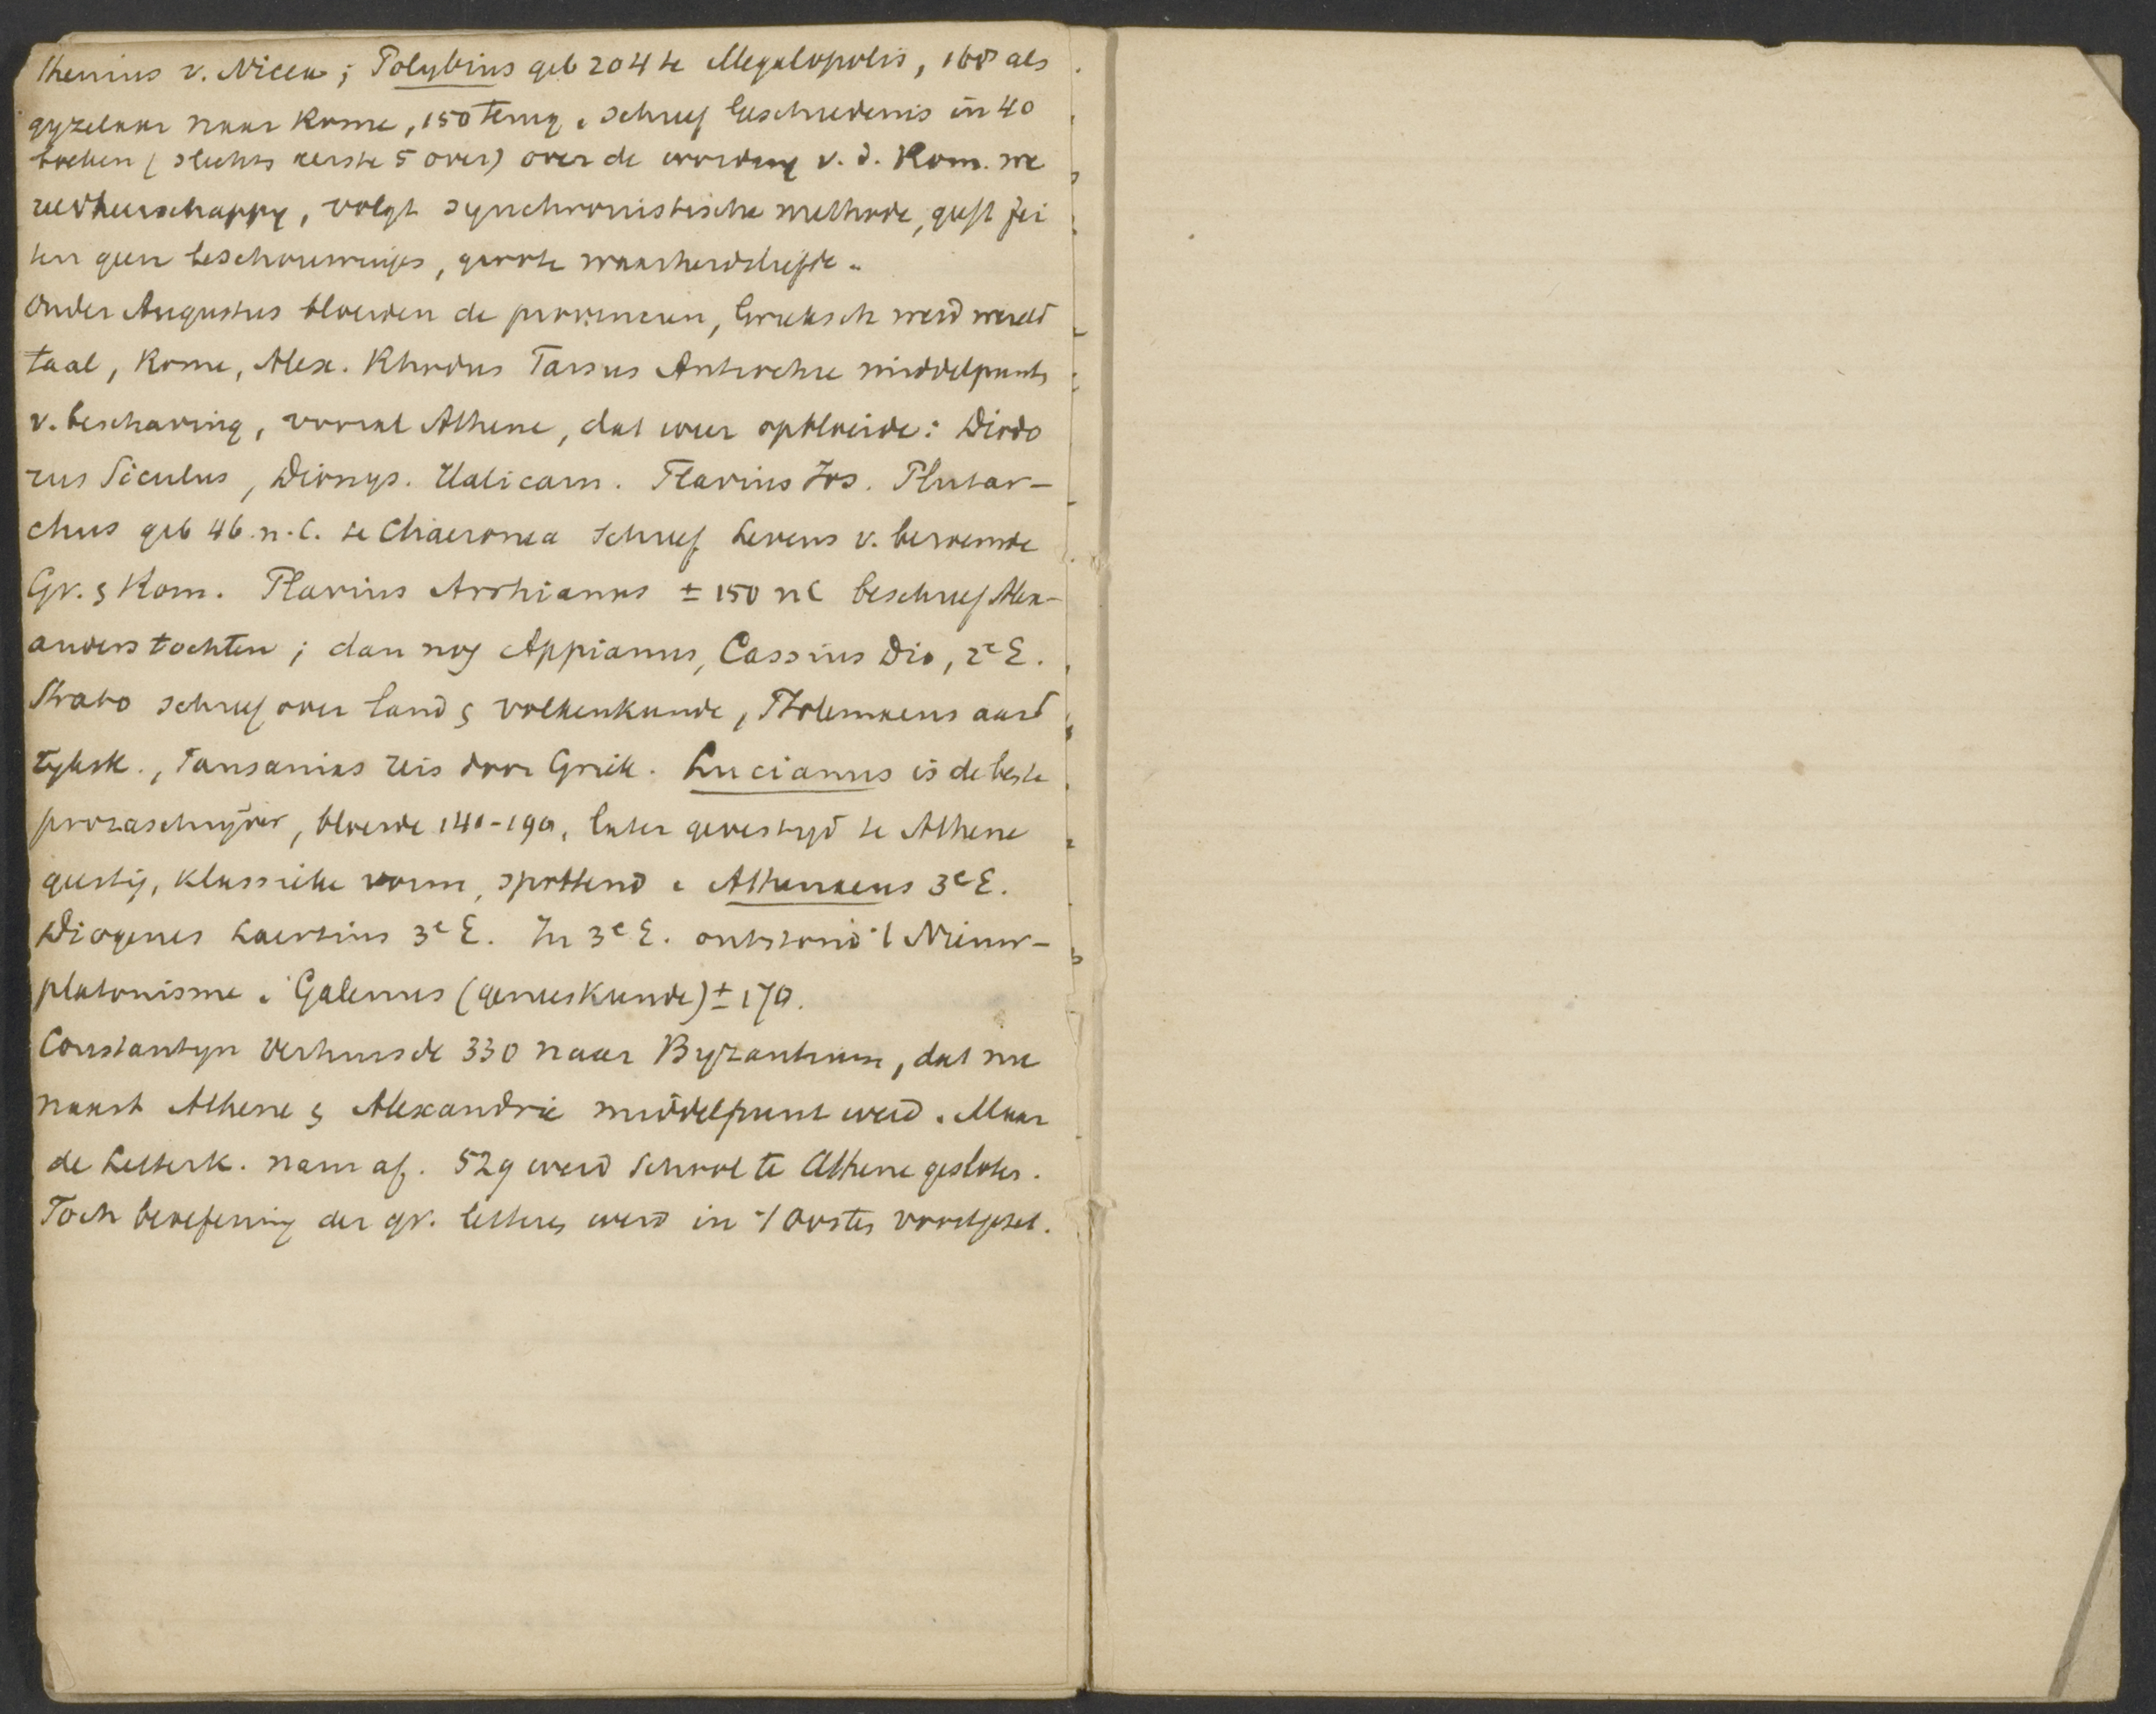 thenius v. Nicea; Polybius geb 204 te Megalopolis, 168 als
gyzelaar naar Rome, 150 terug. Schreef Geschiedenis in 40
boeken (slechts eerste 5 over) over de wording v. d. Rom. we
reldheerschappy, volgt synchronistische methode, geeft fei
ten geen beschouwingen, groote waarheidsliefde.
Onder Augustus bloeiden de provincien, Grieksch werd wereld
taal, Rome, Alex. Rhodus Tarsus Antiochie middelpunts
v. beschaving, vooral Athene, dat weer opbloeide: Diodo
rus Siculus, Dionys. Halicarn. Flavius Jos. Plutar-
chus geb 46 n.C. te Chaeronea schreef Levens v. beroemde
Gr. & Rom. Flavius Arrhianus ± 150 nC beschreef Alex-
anders tochten; dan nog Appianus, Cassius Dio, 2e E.
Strabo schreef over land & volkenkunde, Ptolemaeus aard
ryksk., Pausanias reis door Griek. Lucianus is de beste
prozaschryver, bloeide 140-190, later gevestigd te Athene
geestig, klassieke vorm, spottend. Athenaeus 3e E.
Diogenes Laertius 3e E. In 3e E. ontstond 't Nieuw-
platonisme. Galenus (geneeskunde) ± 170.
Constantyn verhuisde 330 naar Byzantium, dat nu
naast Athene & Alexandrie middelpunt werd. Maar
de Letterk. nam af. 529 werd School te Athene gesloten.
Toch beoefening der gr. letteren werd in 't Oosten voortgezet.